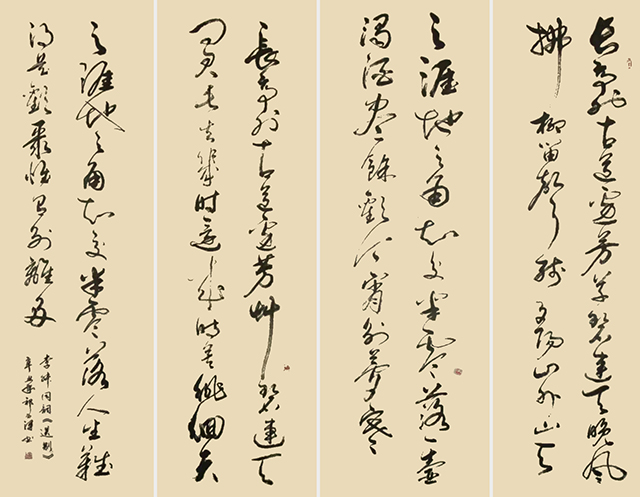 长亭外古道边芳草碧連天晚风
拂柳笛声残夕阳山外山天
之涯地之角知交半零落一壶
浊酒尽餘歡今宵别梦寒
長亭外古道边芳艸碧連天
问君此去幾时还来时莫徘徊天
之涯地之角知交半零落人生難
得是歡聚惟有别離多
李叔同词《送别》
书